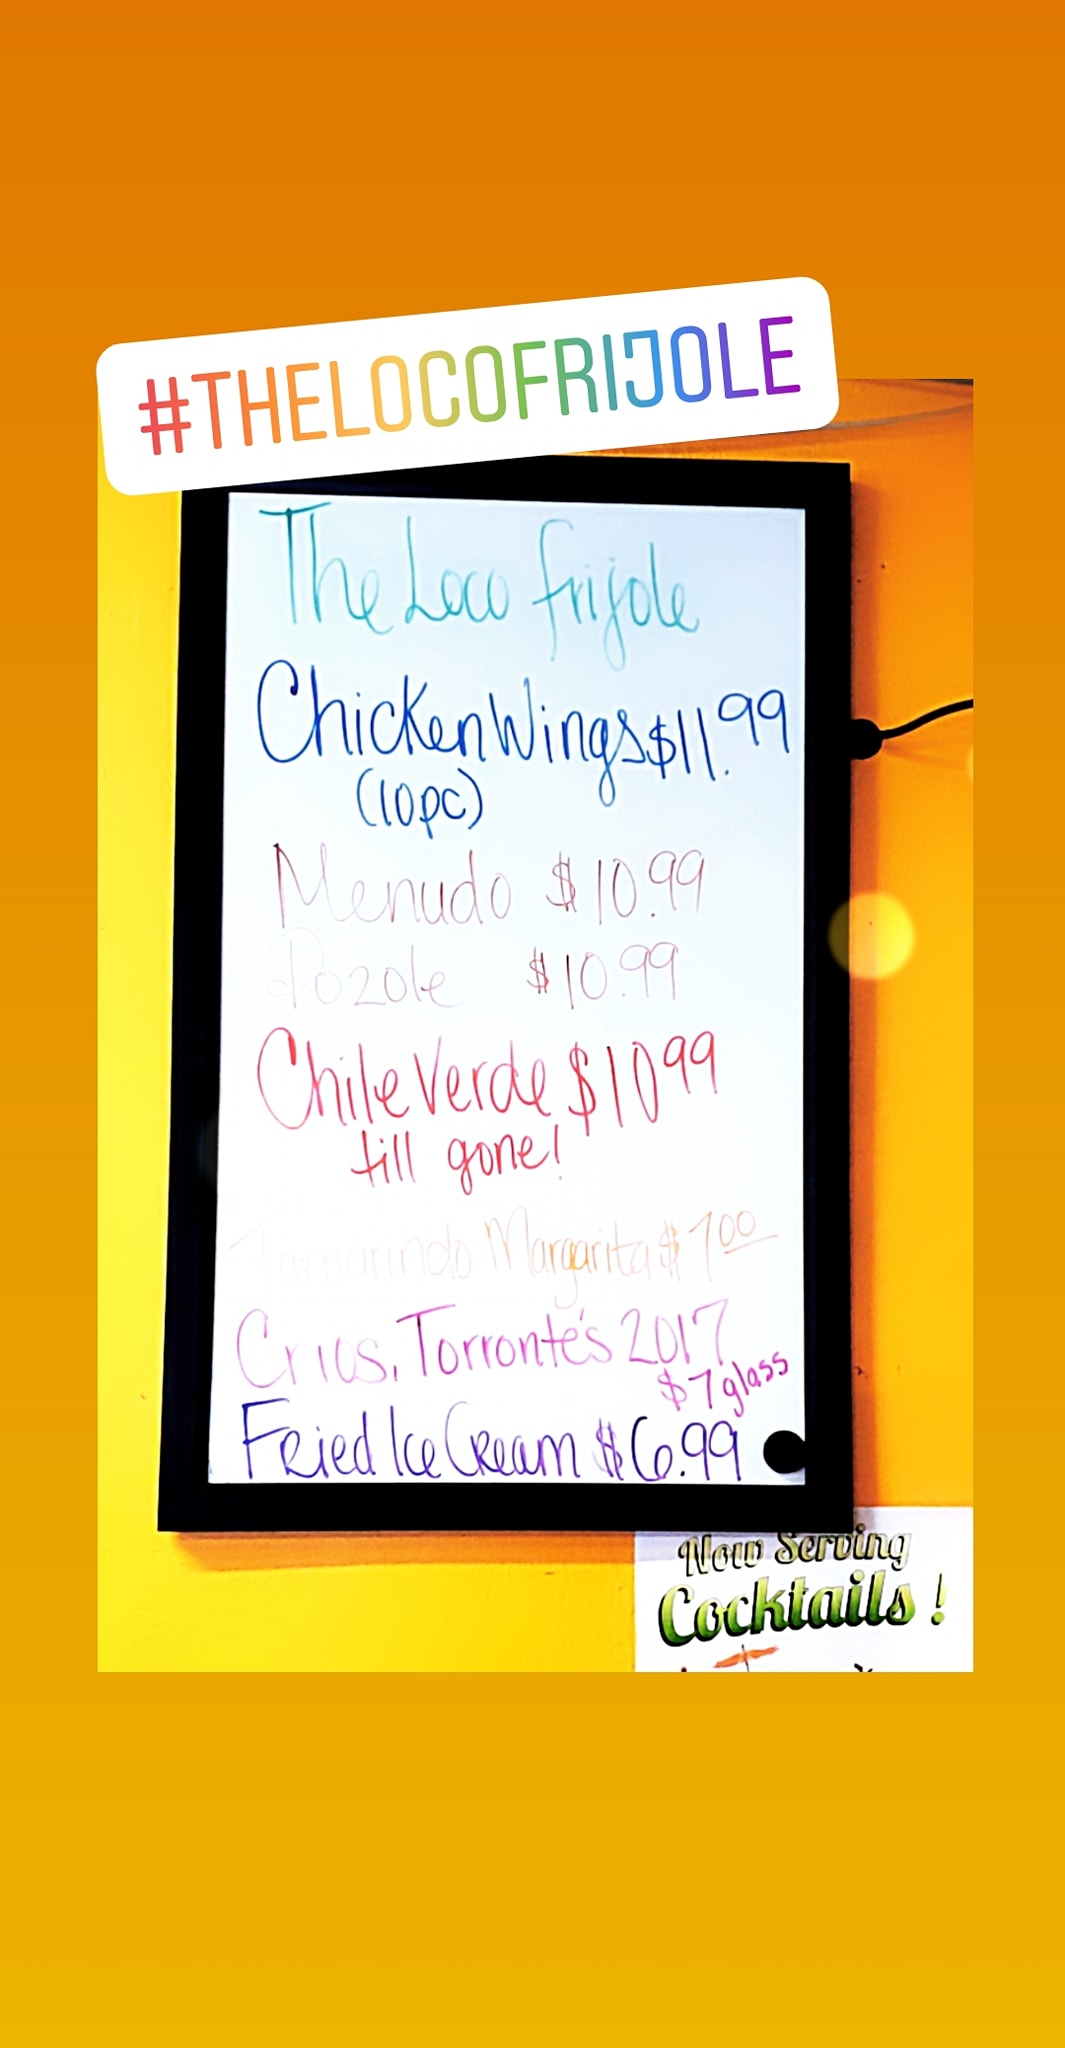 #THELOCOFRIJOLE
The Loco Frijole
Chicken Wings $11.99
(10pc)
Menudo $10.99
Pozole $10.99
Chile Verde $10.99
till gone!
Tamarindo Margarita $7.00
Crios, Torronte's 2017
$7 glass
Fried Ice Cream $6.99
Now Serving
Cocktails!